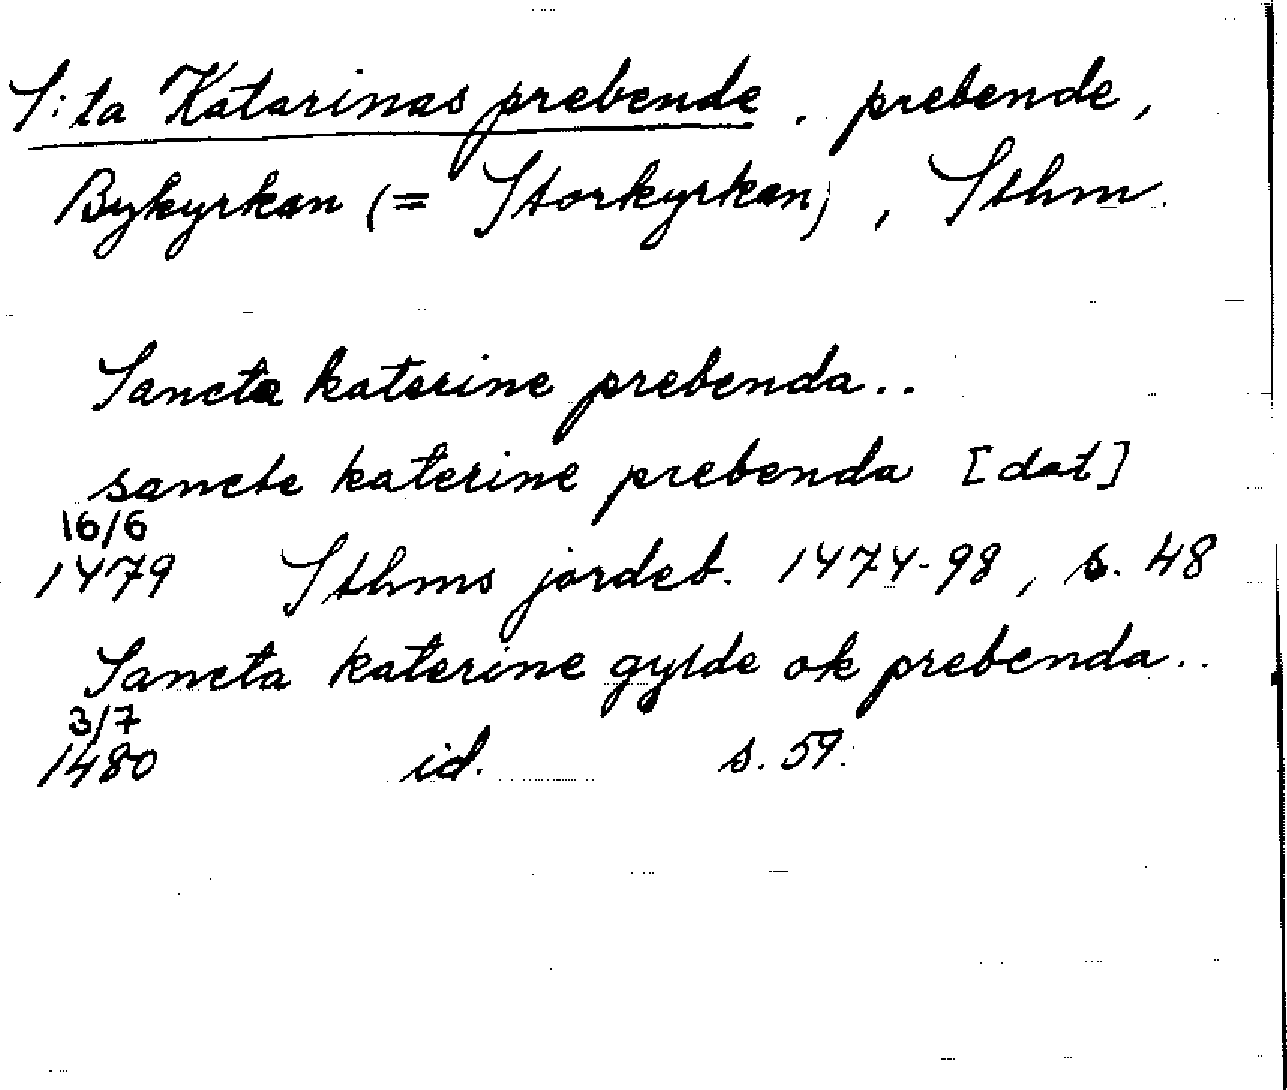 S:ta Katarinas prebende. prebende,
Bykyrkan (= Storkyrkan), Sthm.
Sancta katerine prebenda..
sancte katerine prebenda [dat]
16/6
1479 Sthms jordeb. 1474-98, s. 48
Sancta katerine gylde ok prebenda..
3/7
1480 id. s. 59.